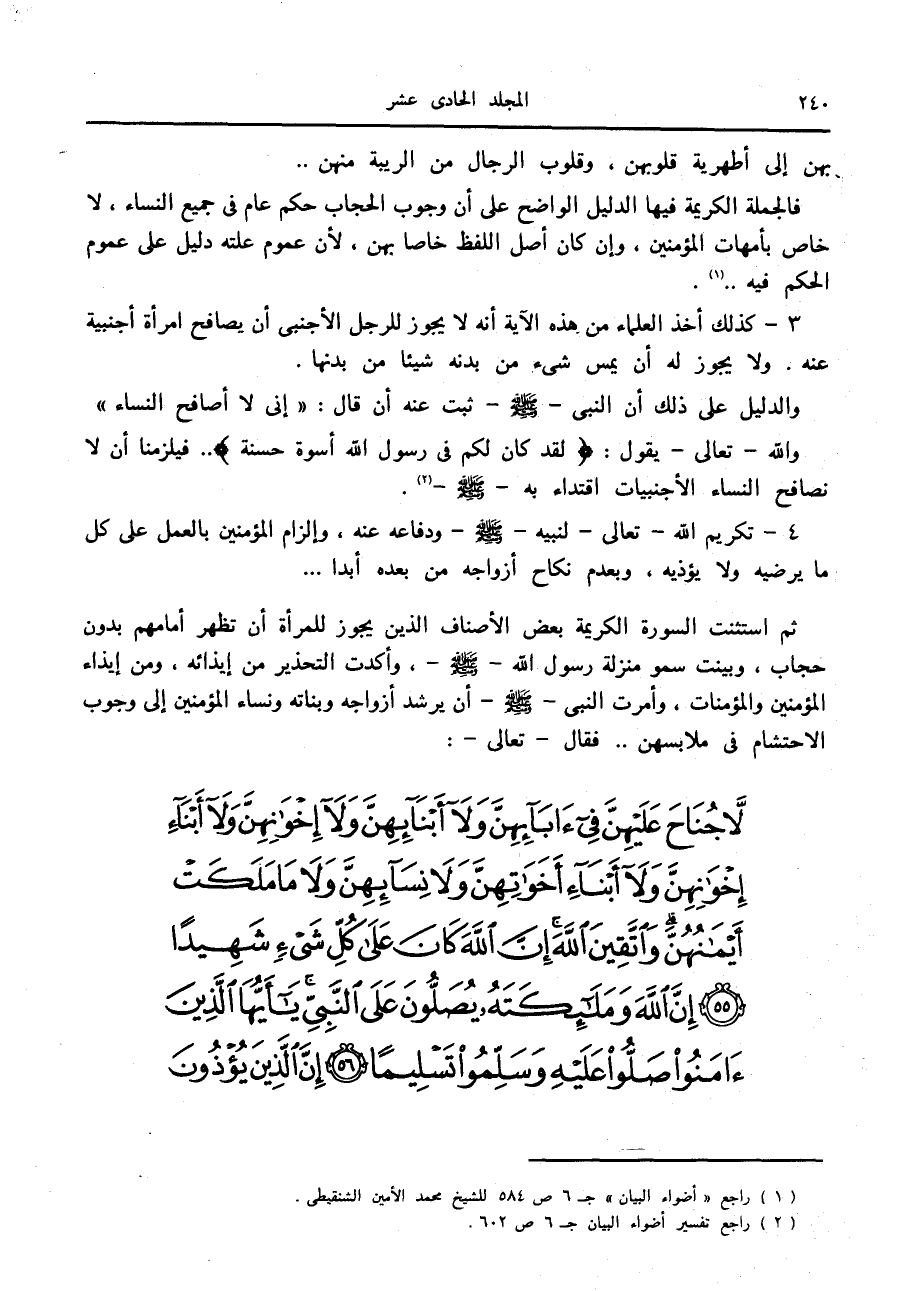 ٢٤٠ المجلد الحادى عشر
بهن إلى أطهرية قلوبهن ، وقلوب الرجال من الريبة منهن ..
فالجملة الكريمة فيها الدليل الواضح على أن وجوب الحجاب حكم عام فى جميع النساء ، لا
خاص بأمهات المؤمنين ، وإن كان أصل اللفظ خاصا بهن ، لأن عموم علته دليل على عموم
الحكم فيه ..(١) .
٣ – كذلك أخذ العلماء من هذه الآية أنه لا يجوز للرجل الأجنبى أن يصافح امرأة أجنبية
عنه . ولا يجوز له أن يمس شىء من بدنه شيئا من بدنها .
والدليل على ذلك أن النبى – ﷺ – ثبت عنه أن قال : « إنى لا أصافح النساء »
والله – تعالى – يقول : ﴿ لقد كان لكم فى رسول الله أسوة حسنة ﴾.. فيلزمنا أن لا
نصافح النساء الأجنبيات اقتداء به – ﷺ –(٢) .
٤ – تكريم الله – تعالى – لنبيه – ﷺ – ودفاعه عنه ، وإلزام المؤمنين بالعمل على كل
ما يرضيه ولا يؤذيه ، وبعدم نكاح أزواجه من بعده أبدا ...
ثم استثنت السورة الكريمة بعض الأصناف الذين يجوز للمرأة أن تظهر أمامهم بدون
حجاب ، وبينت سمو منزلة رسول الله – ﷺ – ، وأكدت التحذير من إيذائه ، ومن إيذاء
المؤمنين والمؤمنات ، وأمرت النبى – ﷺ – أن يرشد أزواجه وبناته ونساء المؤمنين إلى وجوب
الاحتشام فى ملابسهن .. فقال – تعالى – :
لَّا جُنَاحَ عَلَيْهِنَّ فِىٓ ءَابَآئِهِنَّ وَلَآ أَبْنَآئِهِنَّ وَلَآ إِخْوَٰنِهِنَّ وَلَآ أَبْنَآءِ
إِخْوَٰنِهِنَّ وَلَآ أَبْنَآءِ أَخَوَٰتِهِنَّ وَلَا نِسَآئِهِنَّ وَلَا مَا مَلَكَتْ
أَيْمَٰنُهُنَّ ۗ وَٱتَّقِينَ ٱللَّهَ ۚ إِنَّ ٱللَّهَ كَانَ عَلَىٰ كُلِّ شَىْءٍ شَهِيدًا
﴿٥٥﴾ إِنَّ ٱللَّهَ وَمَلَٰٓئِكَتَهُۥ يُصَلُّونَ عَلَى ٱلنَّبِىِّ ۚ يَٰٓأَيُّهَا ٱلَّذِينَ
ءَامَنُوا۟ صَلُّوا۟ عَلَيْهِ وَسَلِّمُوا۟ تَسْلِيمًا ﴿٥٦﴾ إِنَّ ٱلَّذِينَ يُؤْذُونَ
( ١ ) راجع « أضواء البيان » جـ ٦ ص ٥٨٤ للشيخ محمد الأمين الشنقيطى .
( ٢ ) راجع تفسير أضواء البيان جـ ٦ ص ٦٠٢ .